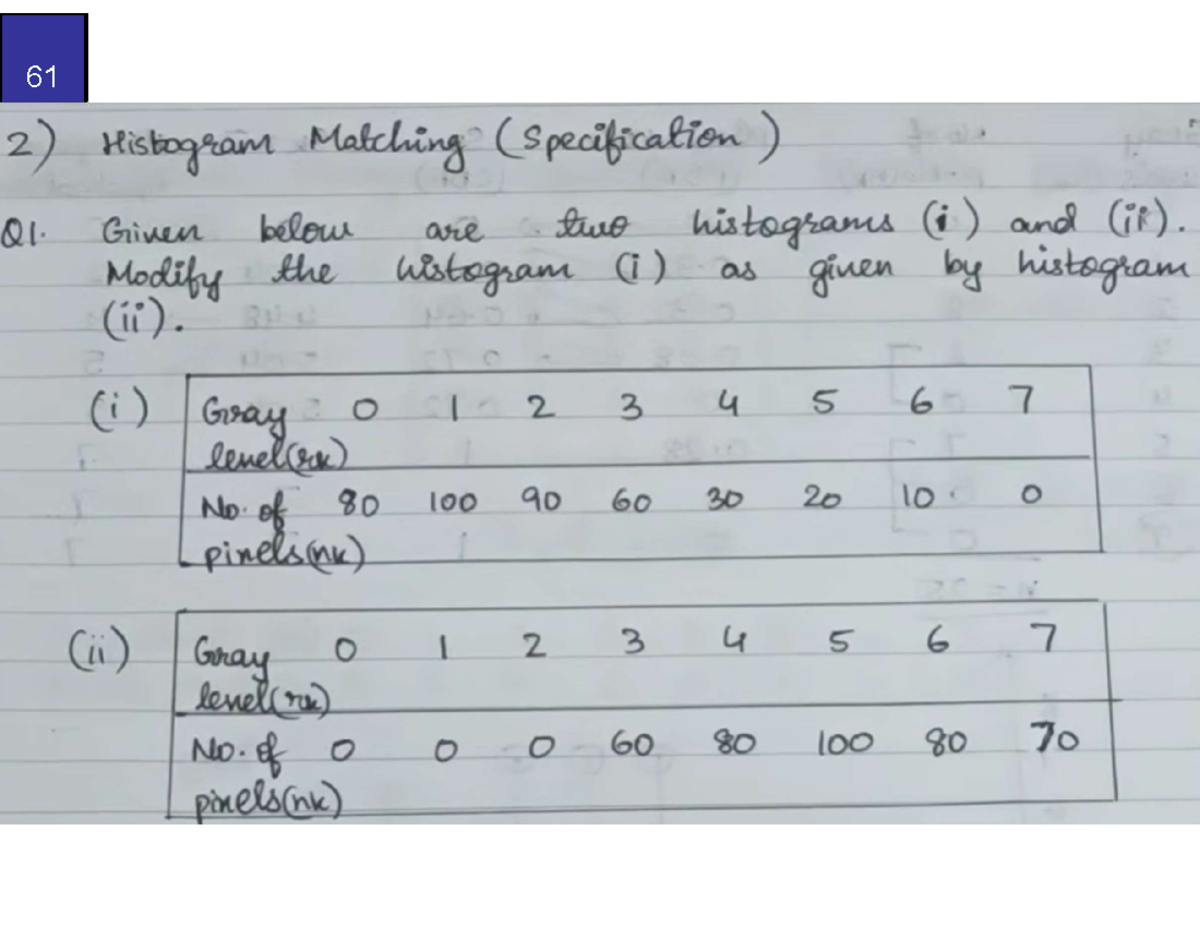 61
2) Histogram Matching (Specification)
Q1. Given below are two histograms (i) and (ii).
Modify the histogram (i) as given by histogram
(ii).
(i) Gray 0 1 2 3 4 5 6 7
level(rk)
No. of 80 100 90 60 30 20 10 0
pixels(nk)
(ii) Gray 0 1 2 3 4 5 6 7
level(rk)
No. of 0 0 0 60 80 100 80 70
pixels(nk)